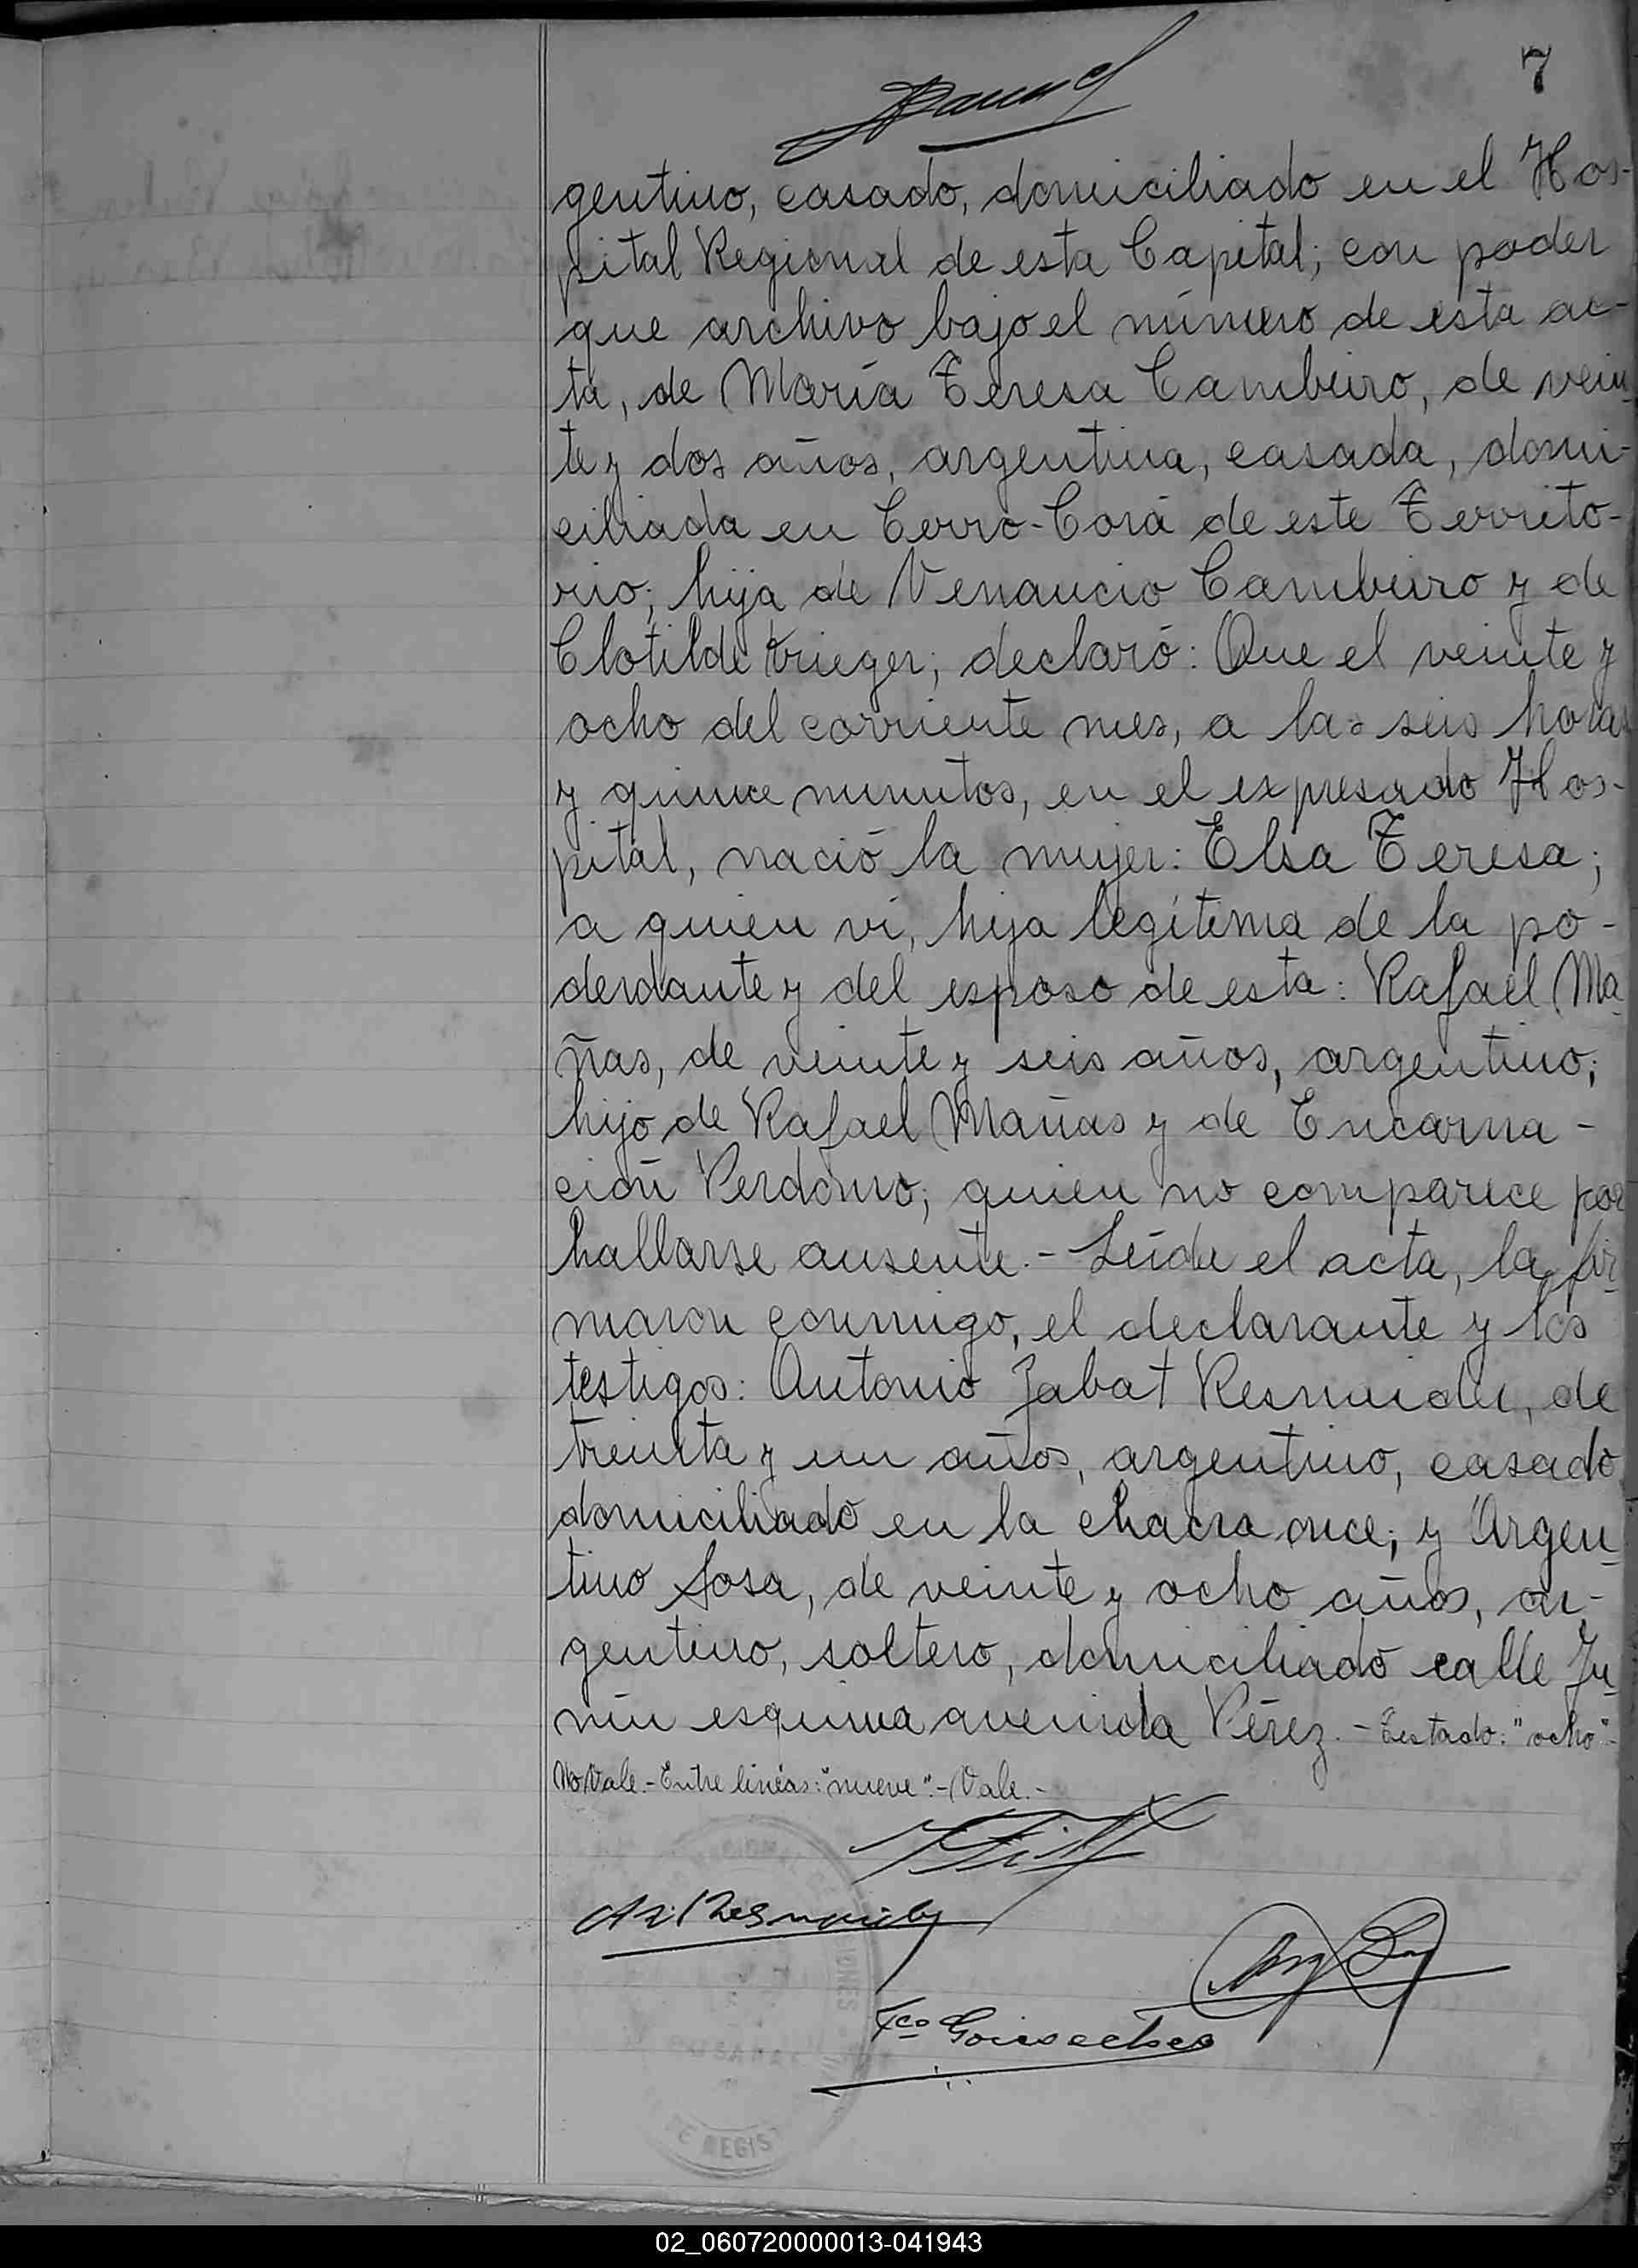 7
gentino, casado, domiciliado en el Hos-
pital Regional de esta Capital; con poder
que archivo bajo el número de esta ac-
ta, de María Teresa Cambeiro, de vein
te y dos años, argentina, casada, domi-
ciliada en Cerro-Corá de este Territo-
rio; hija de Venancio Cambeiro y de
Clotilde Krieger; declaró: Que el veinte y
ocho del corriente mes, a las seis horas
y quince minutos, en el expresado Hos-
pital, nació la mujer: Elsa Teresa;
a quien vi, hija legítima de la po-
derdante y del esposo de esta: Rafael Ma
ñas, de veinte y seis años, argentino;
hijo de Rafael Mañas y de Encarna-
ción Perdomo; quien no comparece por
hallarse ausente.- Leída el acta, la fir
maron conmigo, el declarante y los
testigos: Antonio Zabat Resmuider, de
treinta y un años, argentino, casado
domiciliado en la chacra once; y Argen
tino Sosa, de veinte y ocho años, ar-
gentino, soltero, domiciliado calle Ju
nín esquina avenida Pérez.- Testado: "ocho"-
No Vale.- Entre líneas: "nueve".- Vale.-
E REGIS
02_060720000013-041943